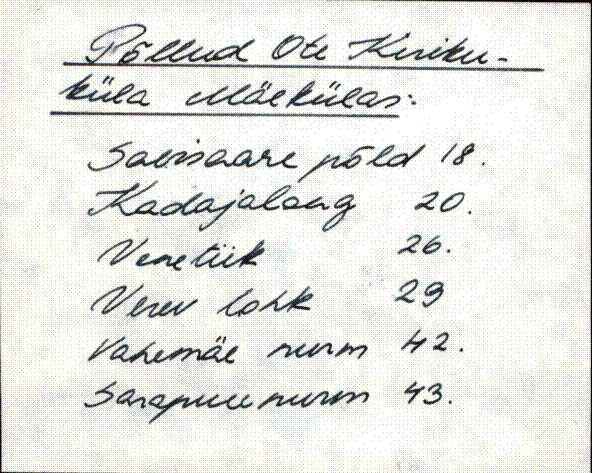 Põllud Ote Kiriku-
küla Mäekülas:
Savisaare põld 18.
Kadajalaug 20.
Venetiik 26.
Verev lohk 29
Vahemäe nurm 42.
Sarapuu nurm 43.